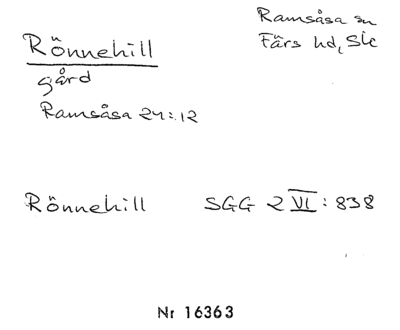 Ramsåsa sn
Färs hd, Sk
Rönnehill
gård
Ramsåsa 24:12
Rönnehill SGG 2 VI: 838
Nr 16363